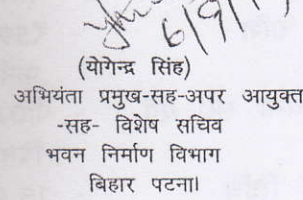 6/9/
(योगेन्द्र सिंह)
अभियंता प्रमुख-सह-अपर आयुक्त
-सह- विशेष सचिव
भवन निर्माण विभाग
बिहार पटना।